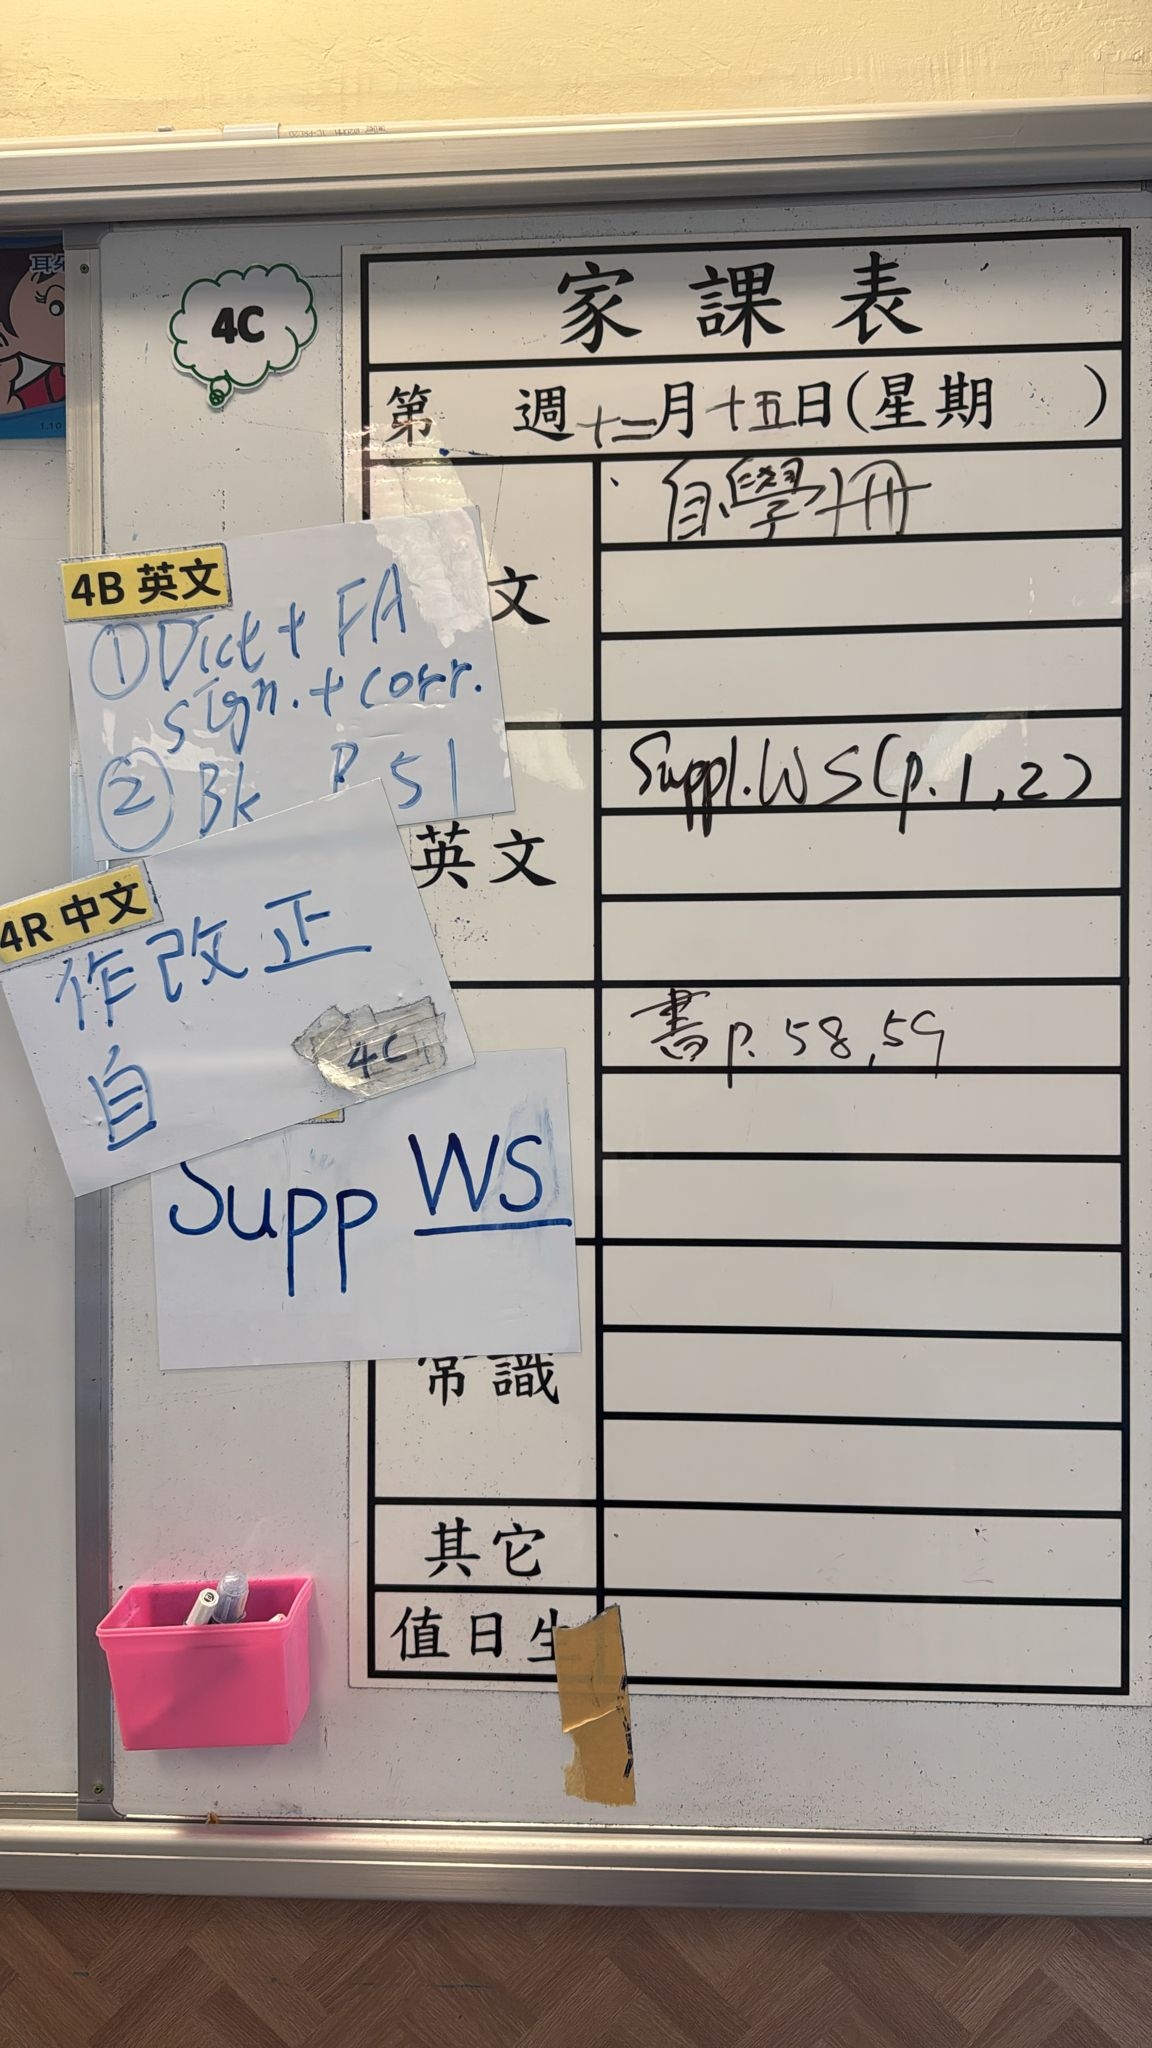 4C
家課表
第 週 十二月十五日(星期 )
自學冊
文
4B 英文
①Dict + FA
sign. + corr.
② Bk P. 51
Suppl. WS (p. 1, 2)
英文
4R 中文
作改正
自
4C
書 p. 58, 59
Supp WS
常識
其它
值日生